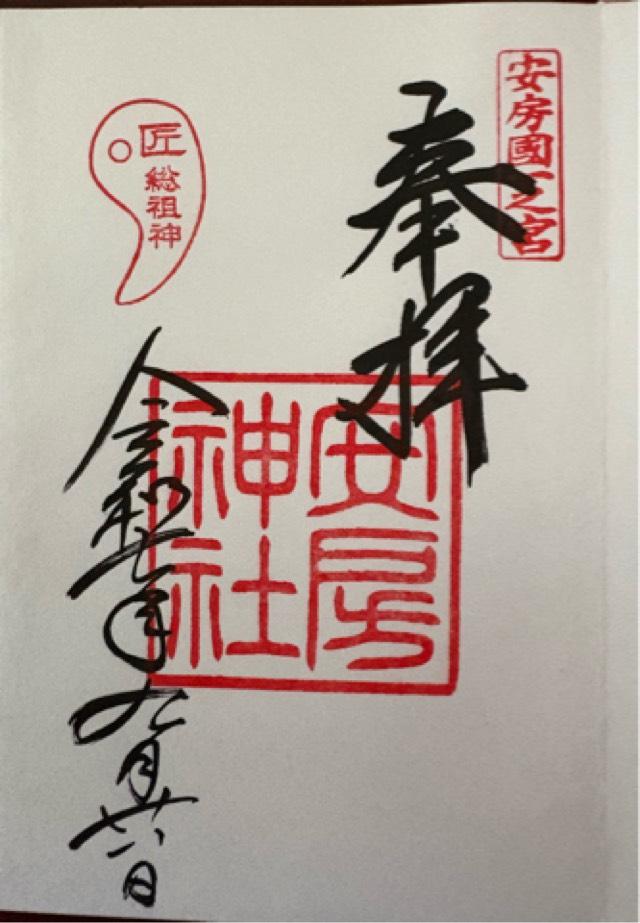 安房國一之宮
奉拝
安房神社
匠総祖神
令和七年九月廿八日